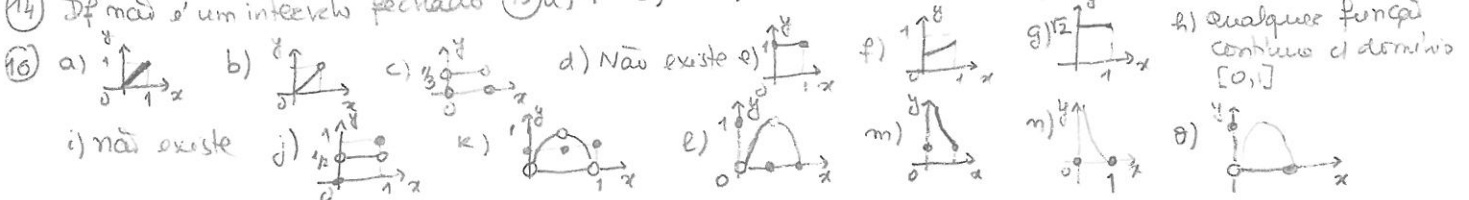 14 Df não é um intervalo fechado 15 a)
16 a) y 1 0 1 x b) y 0 x c) y 1/3 0 x d) Não existe e) 1 y 0 1 x f) 1 y 0 1 x g) √2 1 x h) qualquer função
contínua c/ domínio
[0,1]
i) não existe j) 1 y 1/2 0 1 x k) 1 y 1 x l) 1 y 0 x m) y 0 x n) y 0 1 x o) y 1 x